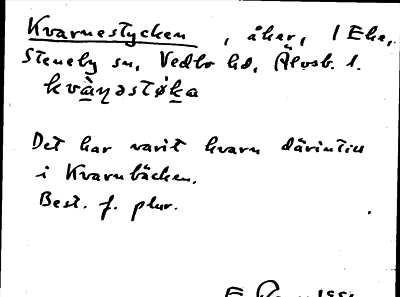 Kvarnestycken, åker, 1 Eke,
Steneby sn, Vedbo hd, Älvsb. l.
kvàɳəstøka
Det har varit kvarn därintill
i Kvarnbäcken.
Best. f. plur.